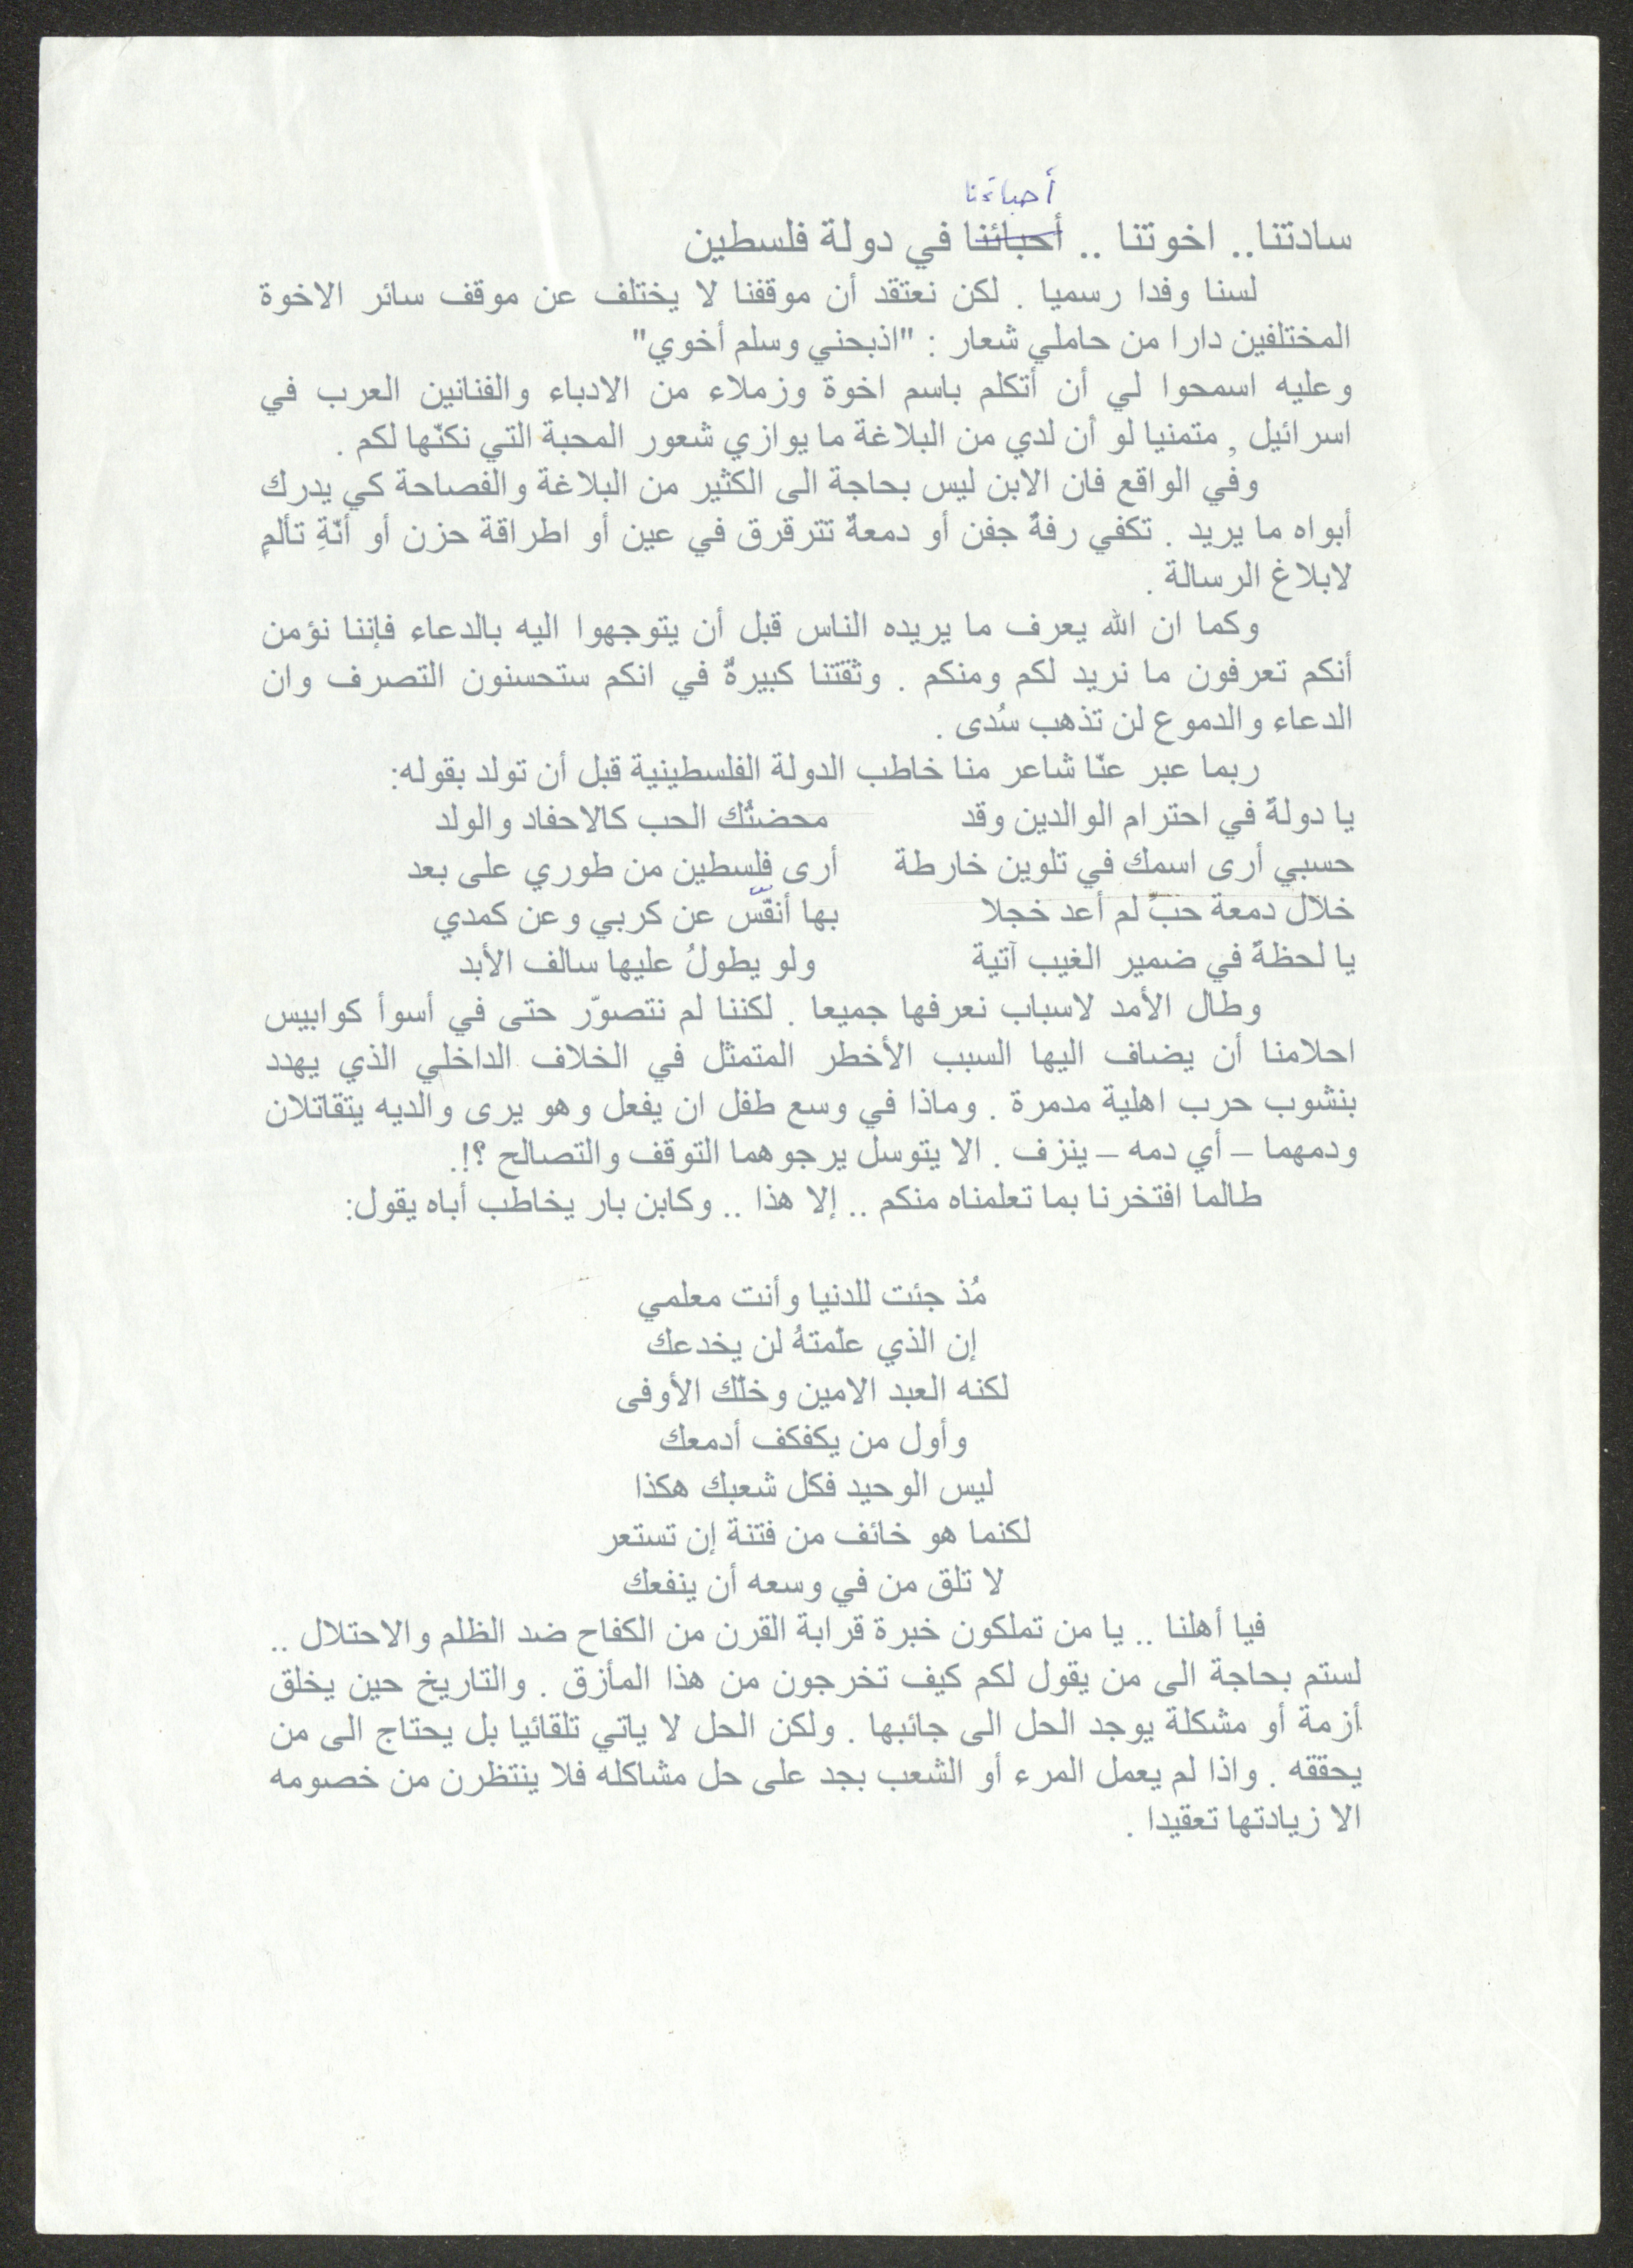 أحباءَنا
سادتنا.. اخوتنا .. أحبائنا في دولة فلسطين
لسنا وفدا رسميا . لكن نعتقد أن موقفنا لا يختلف عن موقف سائر الاخوة
المختلفين دارا من حاملي شعار : "اذبحني وسلم أخوي"
وعليه اسمحوا لي أن أتكلم باسم اخوة وزملاء من الادباء والفنانين العرب في
اسرائيل , متمنيا لو أن لدي من البلاغة ما يوازي شعور المحبة التي نكنّها لكم .
وفي الواقع فان الابن ليس بحاجة الى الكثير من البلاغة والفصاحة كي يدرك
أبواه ما يريد . تكفي رفةُ جفن أو دمعةٌ تترقرق في عين أو اطراقة حزن أو أنّةِ تألمٍ
لابلاغ الرسالة .
وكما ان الله يعرف ما يريده الناس قبل أن يتوجهوا اليه بالدعاء فإننا نؤمن
أنكم تعرفون ما نريد لكم ومنكم . وثقتنا كبيرةٌ في انكم ستحسنون التصرف وان
الدعاء والدموع لن تذهب سُدى .
ربما عبر عنّا شاعر منا خاطب الدولة الفلسطينية قبل أن تولد بقوله:
يا دولةً في احترام الوالدين وقد محضتُك الحب كالاحفاد والولد
حسبي أرى اسمك في تلوين خارطة أرى فلسطين من طوري على بعد
خلال دمعة حبٍ لم أعد خجلا بها أنفّس عن كربي وعن كمدي
يا لحظةً في ضمير الغيب آتية ولو يطولُ عليها سالف الأبد
وطال الأمد لاسباب نعرفها جميعا . لكننا لم نتصوّر حتى في أسوأ كوابيس
احلامنا أن يضاف اليها السبب الأخطر المتمثل في الخلاف الداخلي الذي يهدد
بنشوب حرب اهلية مدمرة . وماذا في وسع طفل ان يفعل وهو يرى والديه يتقاتلان
ودمهما – أي دمه – ينزف . الا يتوسل يرجوهما التوقف والتصالح ؟!.
طالما افتخرنا بما تعلمناه منكم .. إلا هذا .. وكابن بار يخاطب أباه يقول:
مُذ جئت للدنيا وأنت معلمي
إن الذي علّمتهُ لن يخدعك
لكنه العبد الامين وخلّك الأوفى
وأول من يكفكف أدمعك
ليس الوحيد فكل شعبك هكذا
لكنما هو خائف من فتنة إن تستعر
لا تلق من في وسعه أن ينفعك
فيا أهلنا .. يا من تملكون خبرة قرابة القرن من الكفاح ضد الظلم والاحتلال ..
لستم بحاجة الى من يقول لكم كيف تخرجون من هذا المأزق . والتاريخ حين يخلق
أزمة أو مشكلة يوجد الحل الى جانبها . ولكن الحل لا ياتي تلقائيا بل يحتاج الى من
يحققه . واذا لم يعمل المرء أو الشعب بجد على حل مشاكله فلا ينتظرن من خصومه
الا زيادتها تعقيدا .